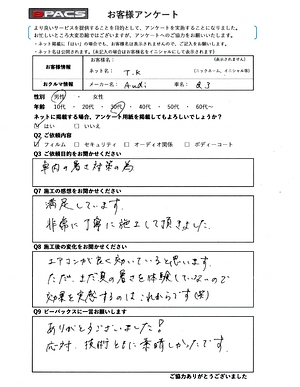 PACS お客様アンケート
より良いサービスを提供することを目的として、アンケートを実施することになりました。
お忙しいところ大変恐縮ではございますが、アンケートへのご協力をお願いいたします。
・ネット掲載に「はい」の場合でも、お客様名は表示されませんので、ご記入をお願いします。
・ネット名は公開されます。(未記入の場合はお客様名をイニシャルにして表示されます)
お客様情報
お客様名： (表示されません)
ネット名： T.K (ニックネーム、イニシャル等)
おクルマ情報 メーカー名： Audi 車名：
性別 男性 ・ 女性
年齢 10代 ・ 20代 ・ 30代 ・ 40代 ・ 50代 ・ 60代〜
ネットに掲載する場合、アンケート用紙を掲載してもよろしいでしょうか？
☑はい □いいえ
Q2 ご依頼内容
☑フィルム □セキュリティ □オーディオ関係 □ボディーコート
Q3 ご依頼目的をお聞かせください
車内の暑さ対策の為
Q7 施工の感想をお聞かせください
満足しています。
非常に丁寧に施工して頂きました。
Q8 施工後の変化をお聞かせください
エアコンが良く効いていると思います。
ただ、まだ夏の暑さを体験していないので
効果を実感するのはこれからです(笑)
Q9 ピーパックスに一言お願いします
ありがとうございました！
応対、技術ともに素晴しかったです。
ご協力ありがとうございました